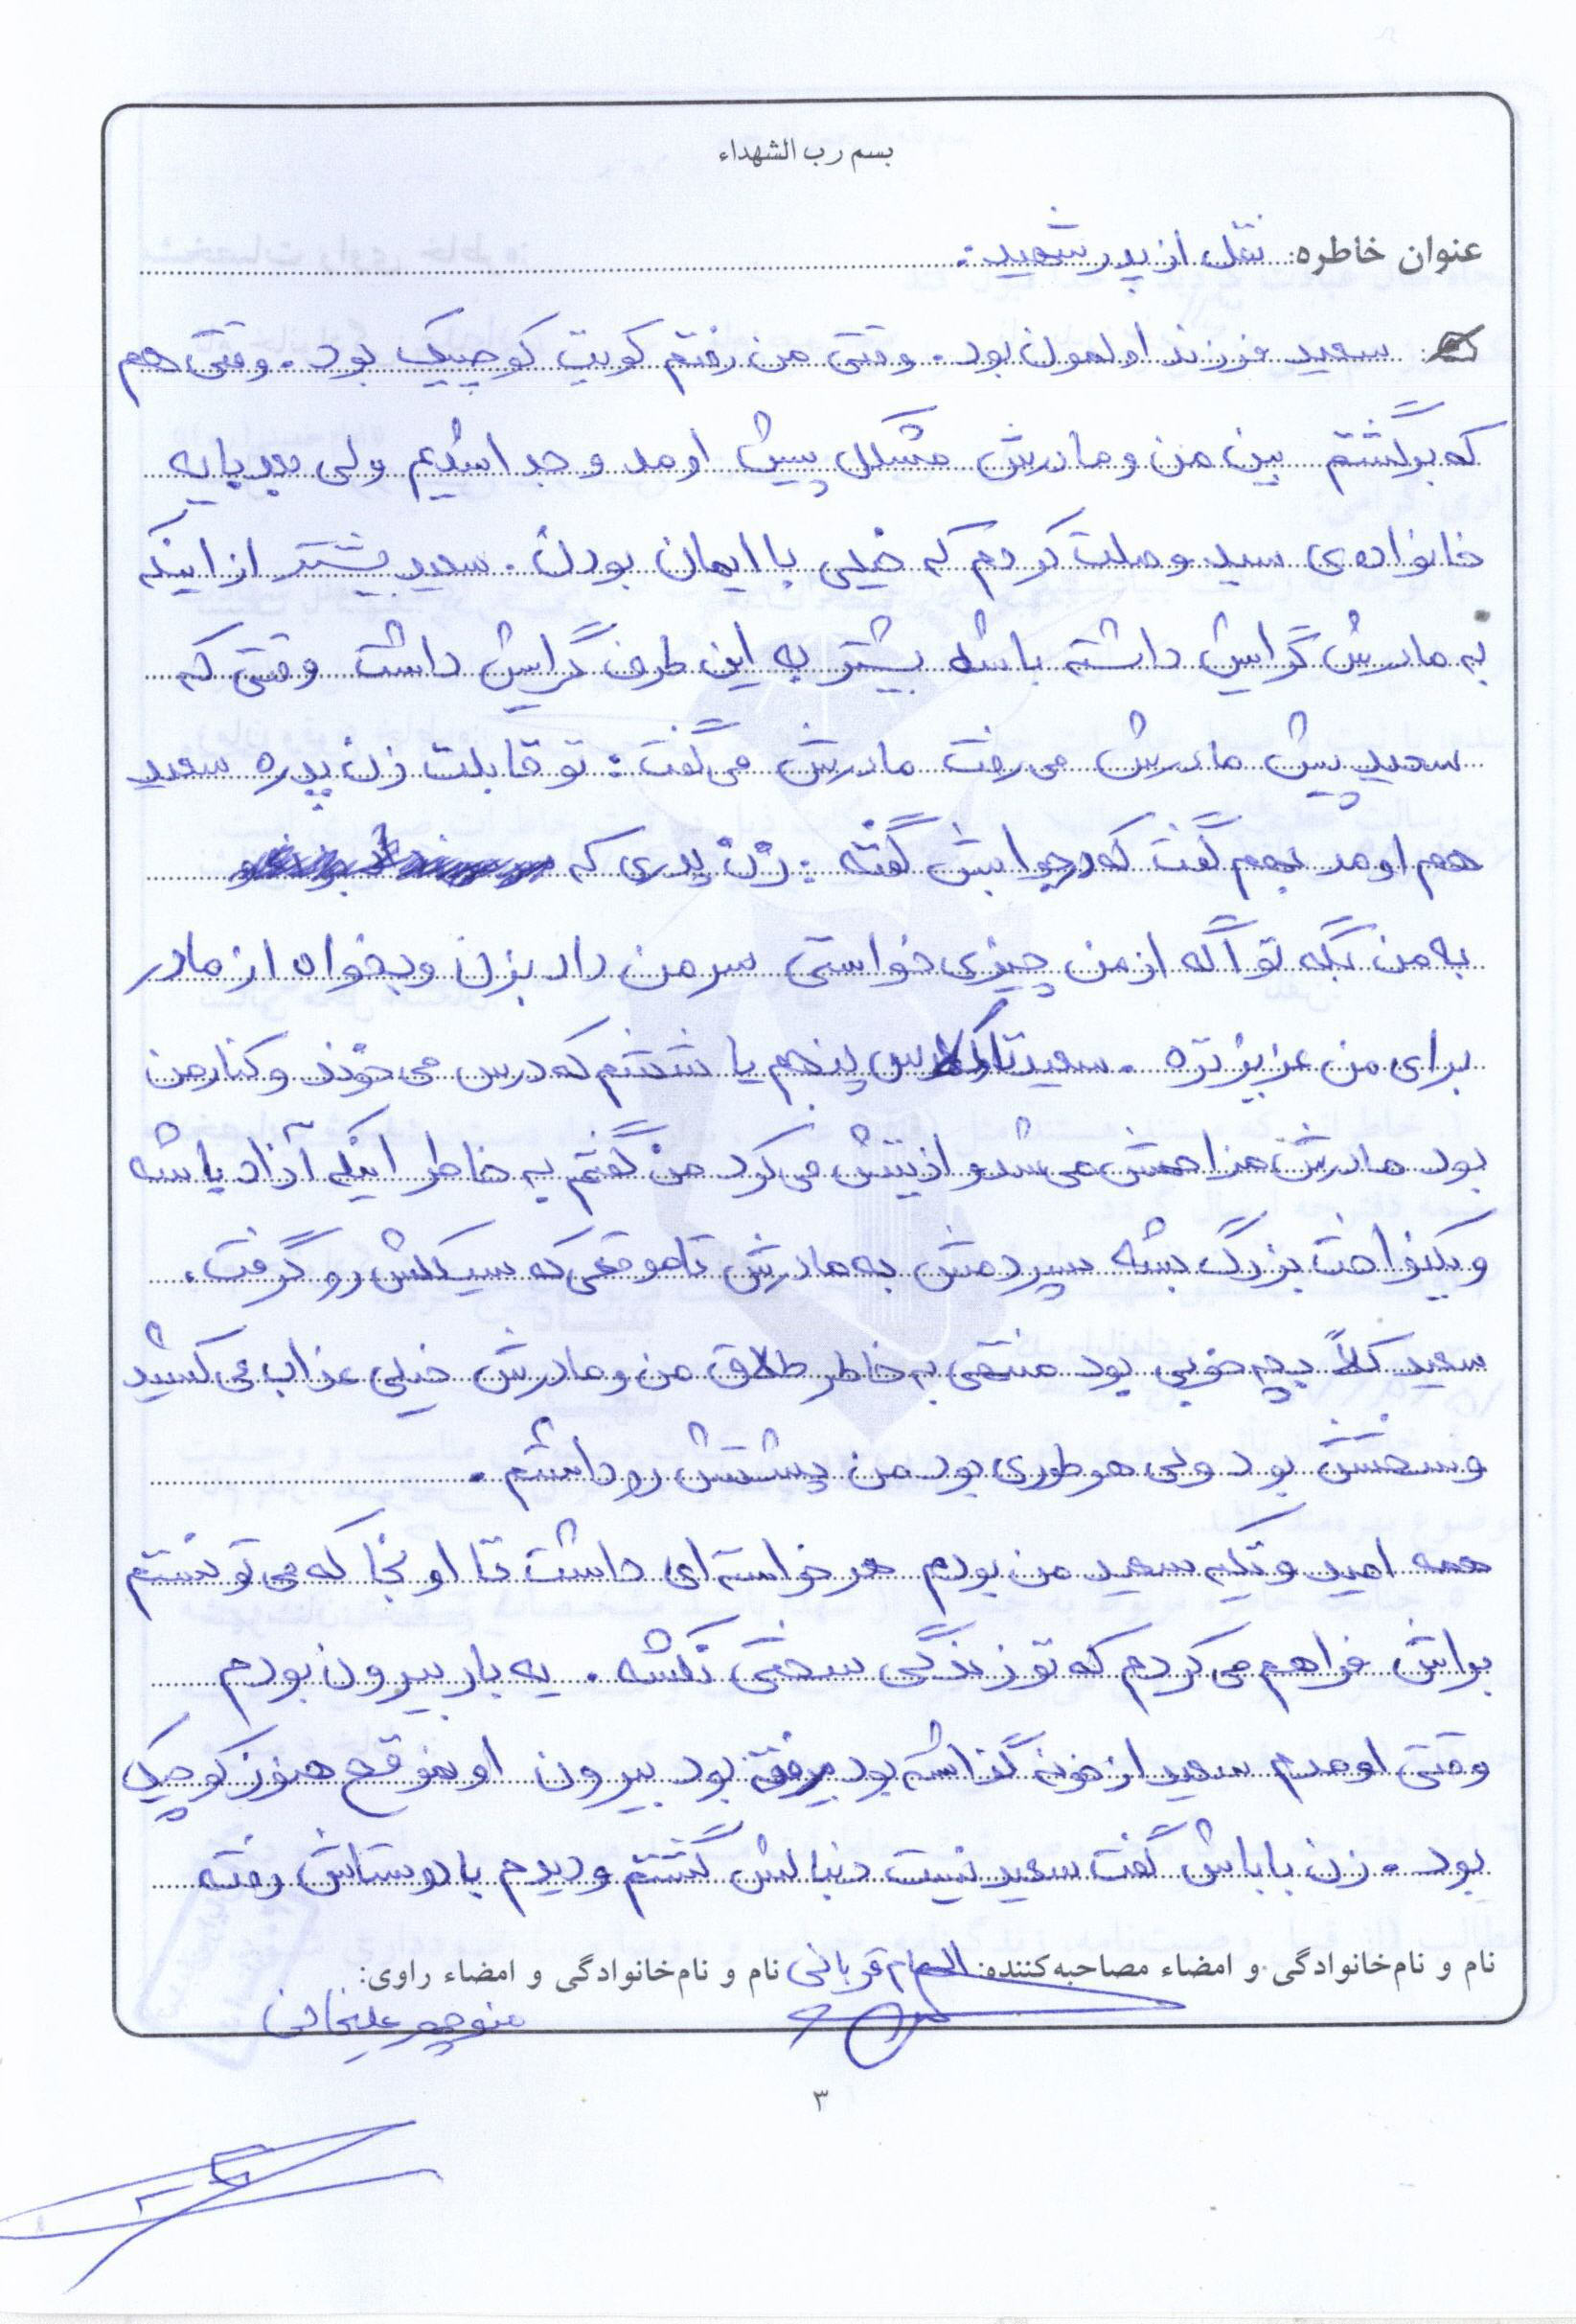 بسم رب الشهداء
عنوان خاطره: نقل از پدر شهید:
سعید فرزند اولمون بود. وقتی من رفتم کویت کوچیک بود. وقتی هم
که برگشتم بین من و مادرش مشکل پیش اومد و جدا شدیم ولی بعد با یه
خانواده‌ی سید وصلت کردم که خیلی با ایمان بودن. سعید بیشتر از اینکه
به مادرش گرایش داشته باشه بیشتر به این طرف گرایش داشت وقتی که
سعید پیش مادرش می‌رفت مادرش می‌گفت: تو قابلت زن پدره سعید
هم اومد بهم گفت که در جوابش گفته: زن پدری که
به من بگه تو اگه از من چیزی خواستی سر من داد بزن و بخواه از مادر
برای من عزیزتره. سعید تا کلاس پنجم یا ششم که درس می‌خوند و کنار من
بود مادرش مزاحمش می‌شد و اذیتش می‌کرد من گفتم به خاطر اینکه آزاد باشه
و یکنواخت بزرگ بشه سپردمش به مادرش تا موقعی که سیکلش رو گرفت.
سعید کلاً بچه خوبی بود منتهی به خاطر طلاق من و مادرش خیلی عذاب می‌کشید
و سختش بود ولی هر طوری بود من پشتش رو داشتم.
همه امید و تکیه سعید من بودم هر خواسته‌ای داشت تا اونجا که می‌تونستم
براش فراهم می‌کردم که تو زندگی سختی نکشه. یه بار بیرون بودم
وقتی اومدم سعید از خونه گذاشته بود رفته بود بیرون اونموقع هنوز کوچیک
بود. زن باباش گفت سعید نیست دنبالش گشتم و دیدم با دوستاش رفته
نام و نام‌خانوادگی و امضاء مصاحبه‌کننده: الهام قربانی نام و نام‌خانوادگی و امضاء راوی:
منوچهر علیخانی
۳